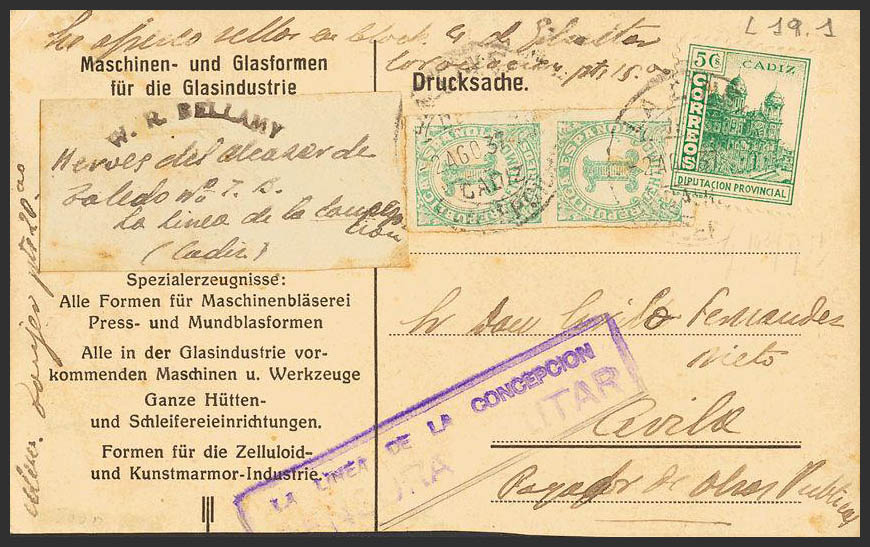 L 19.1
sellos en block
Maschinen- und Glasformen
für die Glasindustrie
Drucksache.
W. R. BELLAMY
Heroes del Alcazar de
Toledo nº 7. B.
La Linea de la Concep-
cion
(Cadiz)
2 AGO 37
CADIZ
ESPAÑOL
1
ESPAÑOL
1
5 Cs
CADIZ
CORREOS
DIPUTACION PROVINCIAL
Spezialerzeugnisse:
Alle Formen für Maschinenbläserei
Press- und Mundblasformen
Alle in der Glasindustrie vor-
kommenden Maschinen u. Werkzeuge
Ganze Hütten-
und Schleifereieinrichtungen.
Formen für die Zelluloid-
und Kunstmarmor-Industrie.
Fernandez
Nieto
Avila
Pagador de Obras Publicas
LA LINEA DE LA CONCEPCION
CENSURA MILITAR